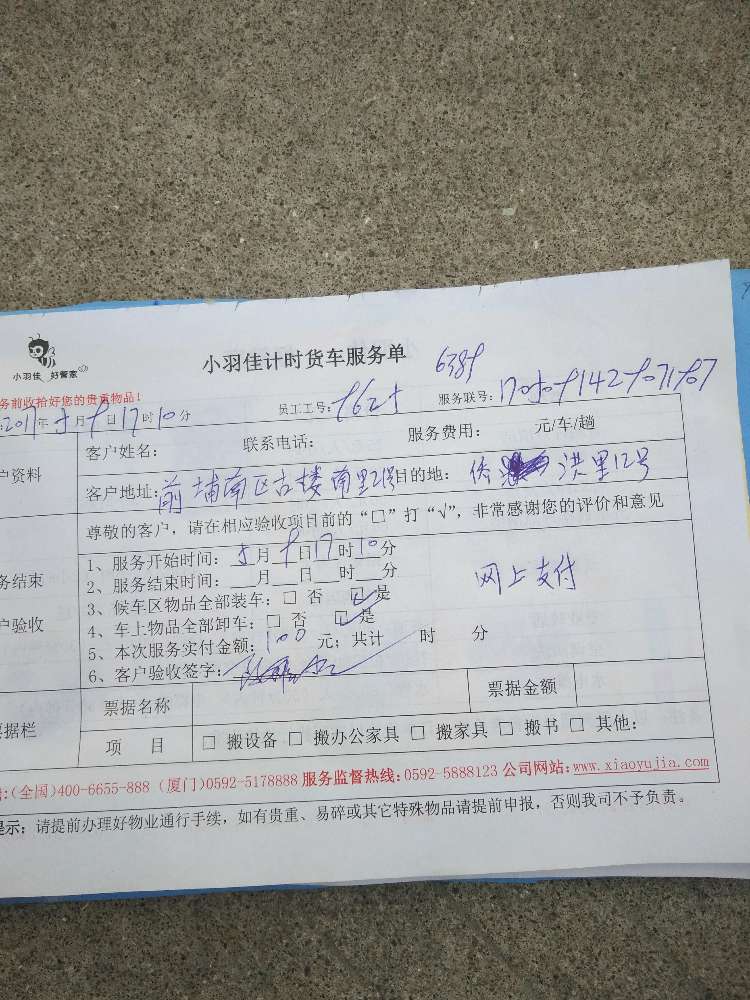 小羽佳 好管家
小羽佳计时货车服务单
638f
务前收拾好您的贵重物品!
2017年5月f日17时10分 员工工号: f625 服务联号:
户资料 客户姓名: 联系电话: 服务费用: 元/车/趟
客户地址: 前埔南区古楼南里2号 目的地: 侨 洪里12号
尊敬的客户,请在相应验收项目前的“□”打“√”,非常感谢您的评价和意见
务结束
户验收
1、服务开始时间: 5月f日17时10分
2、服务结束时间: 月 日 时 分
网上支付
3、候车区物品全部装车: □ 否 ☑ 是
4、车上物品全部卸车: □ 否 ☑ 是
5、本次服务实付金额: 100 元; 共计 时 分
6、客户验收签字:
票据栏 票据名称 票据金额
项 目 □ 搬设备 □ 搬办公家具 □ 搬家具 □ 搬书 □ 其他:
(全国)400-6655-888 (厦门)0592-5178888 服务监督热线:0592-5888123 公司网站:www.xiaoyujia.com
提示: 请提前办理好物业通行手续,如有贵重、易碎或其它特殊物品请提前申报,否则我司不予负责。